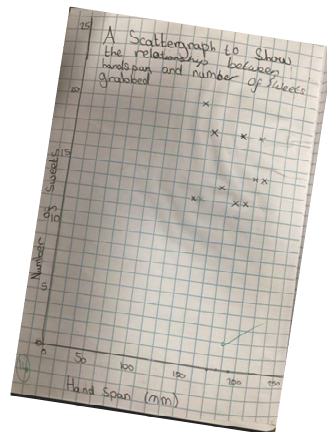 25
A Scattergraph to Show
the relationship between
handspan and number of sweets
grabbed
20
15
10
5
0
Number of Sweets
0 50 100 150 200 250
Hand Span (mm)